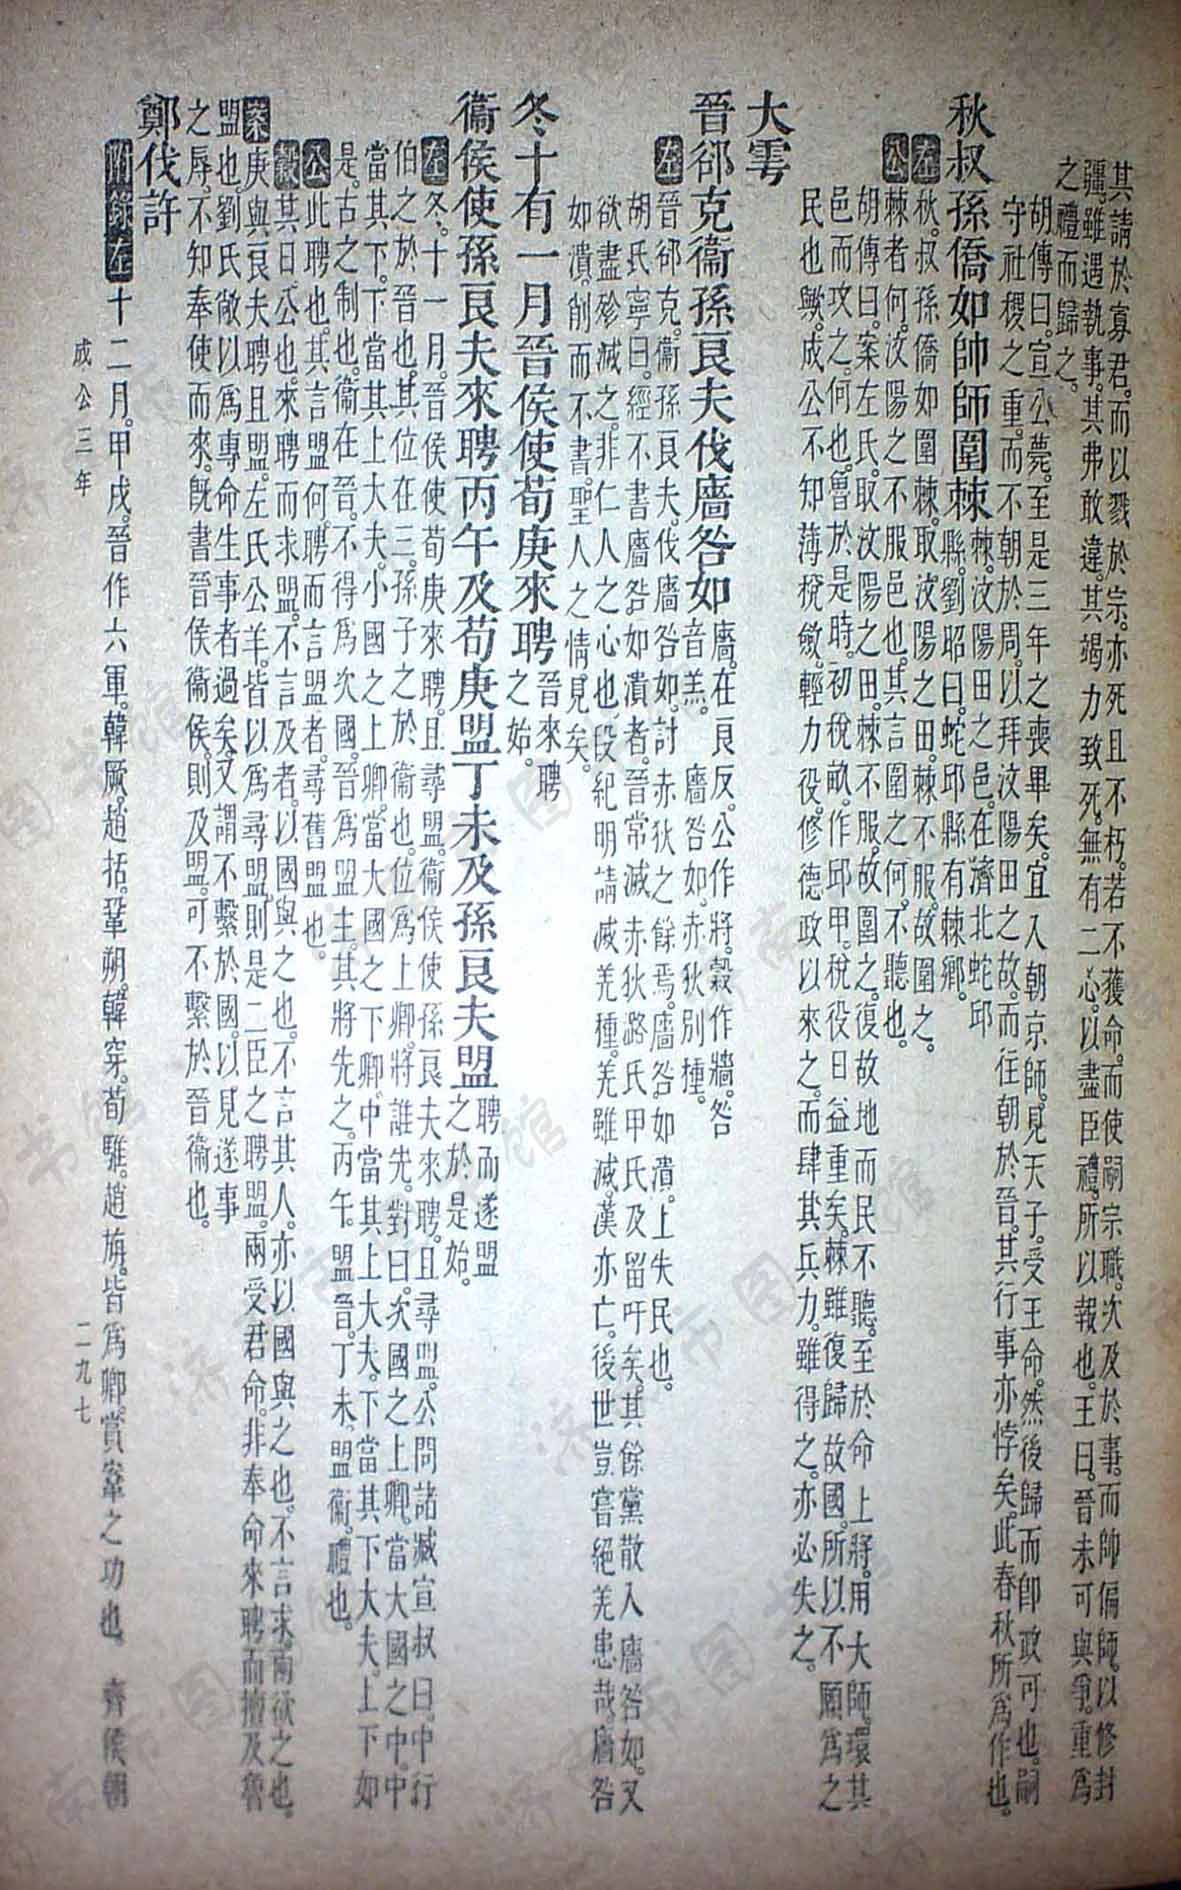 其請於寡君。而以戮於宗。亦死且不朽。若不獲命。而使嗣宗職。次及於事。而帥偏師。以修封
疆。雖遇執事。其弗敢違。其竭力致死。無有二心。以盡臣禮。所以報也。王曰。晉未可與爭。重爲
之禮而歸之。
胡傳曰。宣公薨。至是三年之喪畢矣。宜入朝京師。見天子。受王命。然後歸而卽政可也。嗣
守社稷之重。而不朝於周。以拜汶陽田之故。而往朝於晉。其行事亦悖矣。此春秋所爲作也。
秋叔孫僑如帥師圍棘
棘。汶陽田之邑。在濟北蛇邱
縣。劉昭曰。蛇邱縣有棘鄉。
左秋。叔孫僑如圍棘。取汶陽之田。棘不服。故圍之。
公棘者何。汶陽之不服邑也。其言圍之何。不聽也。
胡傳曰。案左氏。取汶陽之田。棘不服。故圍之。復故地而民不聽。至於命上將。用大師。環其
邑而攻之。何也。魯於是時。初稅畝。作邱甲。稅役日益重矣。棘雖復歸故國。所以不願爲之
民也歟。成公不知薄稅斂。輕力役。修德政以來之。而肆其兵力。雖得之。亦必失之。
大雩
晉郤克衞孫良夫伐廧咎如
廧。在良反。公作將。穀作牆。咎
音羔。廧咎如。赤狄別種。
左晉郤克。衞孫良夫。伐廧咎如。討赤狄之餘焉。廧咎如潰。上失民也。
胡氏寧曰。經不書廧咎如潰者。晉常滅赤狄潞氏甲氏及留吁矣。其餘黨散入廧咎如。又
欲盡殄滅之。非仁人之心也。段紀明請滅羌種。羌雖滅。漢亦亡。後世豈嘗絕羌患哉。廧咎
如潰。削而不書。聖人之情見矣。
冬十有一月晉侯使荀庚來聘
晉來聘
之始。
衞侯使孫良夫來聘丙午及荀庚盟丁未及孫良夫盟
聘而遂盟
之於是始。
左冬。十一月。晉侯使荀庚來聘。且尋盟。衞侯使孫良夫來聘。且尋盟。公問諸臧宣叔曰。中行
伯之於晉也。其位在三。孫子之於衞也。位爲上卿。將誰先。對曰。次國之上卿。當大國之中。中
當其下。下當其上大夫。小國之上卿。當大國之下卿。中當其上大夫。下當其下大夫。上下如
是。古之制也。衞在晉。不得爲次國。晉爲盟主。其將先之。丙午。盟晉。丁未。盟衞。禮也。
公此聘也。其言盟何。聘而言盟者。尋舊盟也。
穀其日。公也。來聘而求盟。不言及者。以國與之也。不言其人。亦以國與之也。不言求。兩欲之也。
案庚與良夫聘且盟。左氏公羊。皆以爲尋盟。則是二臣之聘盟。兩受君命。非奉命來聘而擅及魯
盟也。劉氏敞以爲專命生事者過矣。又謂不繫於國。以見遂事
之辱。不知奉使而來。旣書晉侯衞侯。則及盟。可不繫於晉衞也。
鄭伐許
附錄左十二月。甲戌。晉作六軍。韓厥。趙括。鞏朔。韓穿。荀騅。趙旃。皆爲卿。賞鞌之功也 齊侯朝
成公三年
二九七